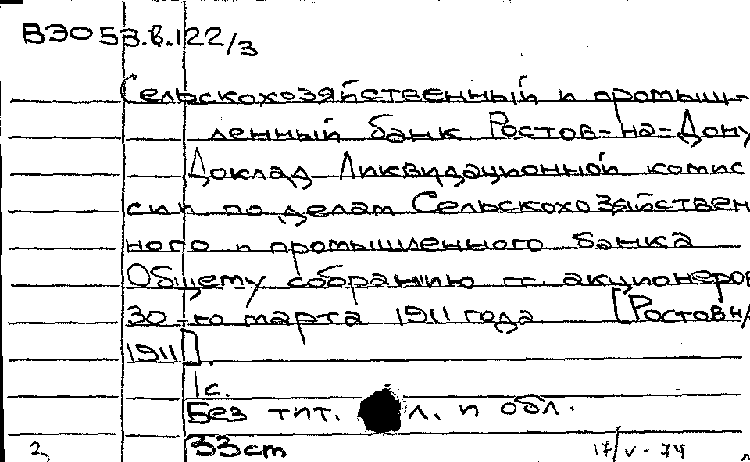 ВЭО 53.в.122/3
Сельскохозяйственный и промыш-
ленный банк Ростов-на-Дону
Доклад Ликвидационной комис
сии по делам Сельскохозяйствен
ного и промышленного банка
Общему собранию гг. акционеров
30-го марта 1911 года [Ростов н/
1911].
1с.
Без тит. л. и обл.
33cm
17/V-74